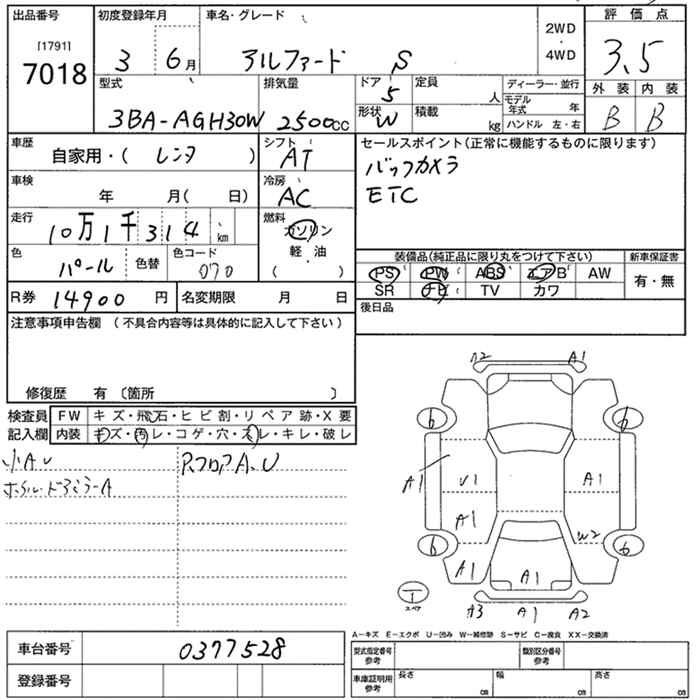 出品番号 初度登録年月 車名・グレード 評価点
[1791]
7018
3 6月 アルファード S
2WD
・
4WD
3.5
型式 排気量 ドア 定員 ディーラー・並行 外装 内装
3BA-AGH30W 2500cc 5 人
形状 W 積載 kg モデル年式 年
ハンドル 左・右
B B
車歴 シフト セールスポイント(正常に機能するものに限ります)
自家用・( レンタ ) AT
バックカメラ
ETC
車検 冷房
年 月( 日) AC
走行 燃料
10万1千314km
ガソリン
軽・油
( )
色 パール 色替 色コード 070
装備品(純正品に限り丸をつけて下さい) 新車保証書
PS PW ABS エアB AW 有・無
SR ナビ TV カワ
R券 14900 円 名変期限 月 日
後日品
注意事項申告欄 (不具合内容等は具体的に記入して下さい)
修復歴 有 〔箇所 〕
検査員記入欄 FW キズ・飛石・ヒビ割・リペア跡・X要
内装 キズ・汚レ・コゲ・穴・スレ・キレ・破レ
小A.U
RフロアA.U
A2 A1
6 6
A1 U1 A1
A1
W2
6 6
A1 A1
1
スペア
A3 A1 A2
A-キズ E-エクボ U-凹み W-補修跡 S-サビ C-腐食 XX-交換済
車台番号 0377528
登録番号
型式指定番号 参考 類別区分番号 参考
車庫証明用 参考 長さ cm 幅 cm 高さ cm